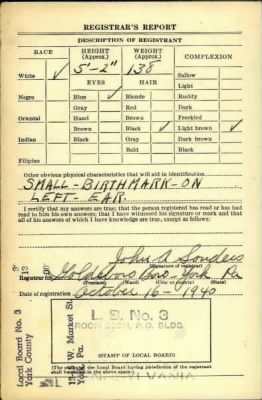 REGISTRAR'S REPORT
DESCRIPTION OF REGISTRANT
RACE HEIGHT (Approx.) WEIGHT (Approx.) COMPLEXION
5'-2" 138
White ✓ Sallow
EYES HAIR Light
Negro Blue ✓ Blonde Ruddy
Gray Red Dark
Oriental Hazel Brown Freckled
Brown Black ✓ Light brown ✓
Indian Black Gray Dark brown
Bald Black
Filipino
Other obvious physical characteristics that will aid in identification
SMALL-BIRTHMARK-ON
LEFT-EAR
I certify that my answers are true; that the person registered has read or has had
read to him his own answers; that I have witnessed his signature or mark and that
all of his answers of which I have knowledge are true, except as follows:
John A Sanders
(Signature of registrar)
Registrar for Goldsboro Boro-York Pa
(Precinct) (Ward) (City or County) (State)
Date of registration October 16-1940
Local Board No. 3
York County
W. Market St
Pa.
L. B. No. 3
P.O. BLDG.
(STAMP OF LOCAL BOARD)
(The stamp of the Local Board having jurisdiction of the registrant
shall be placed in the above space.)